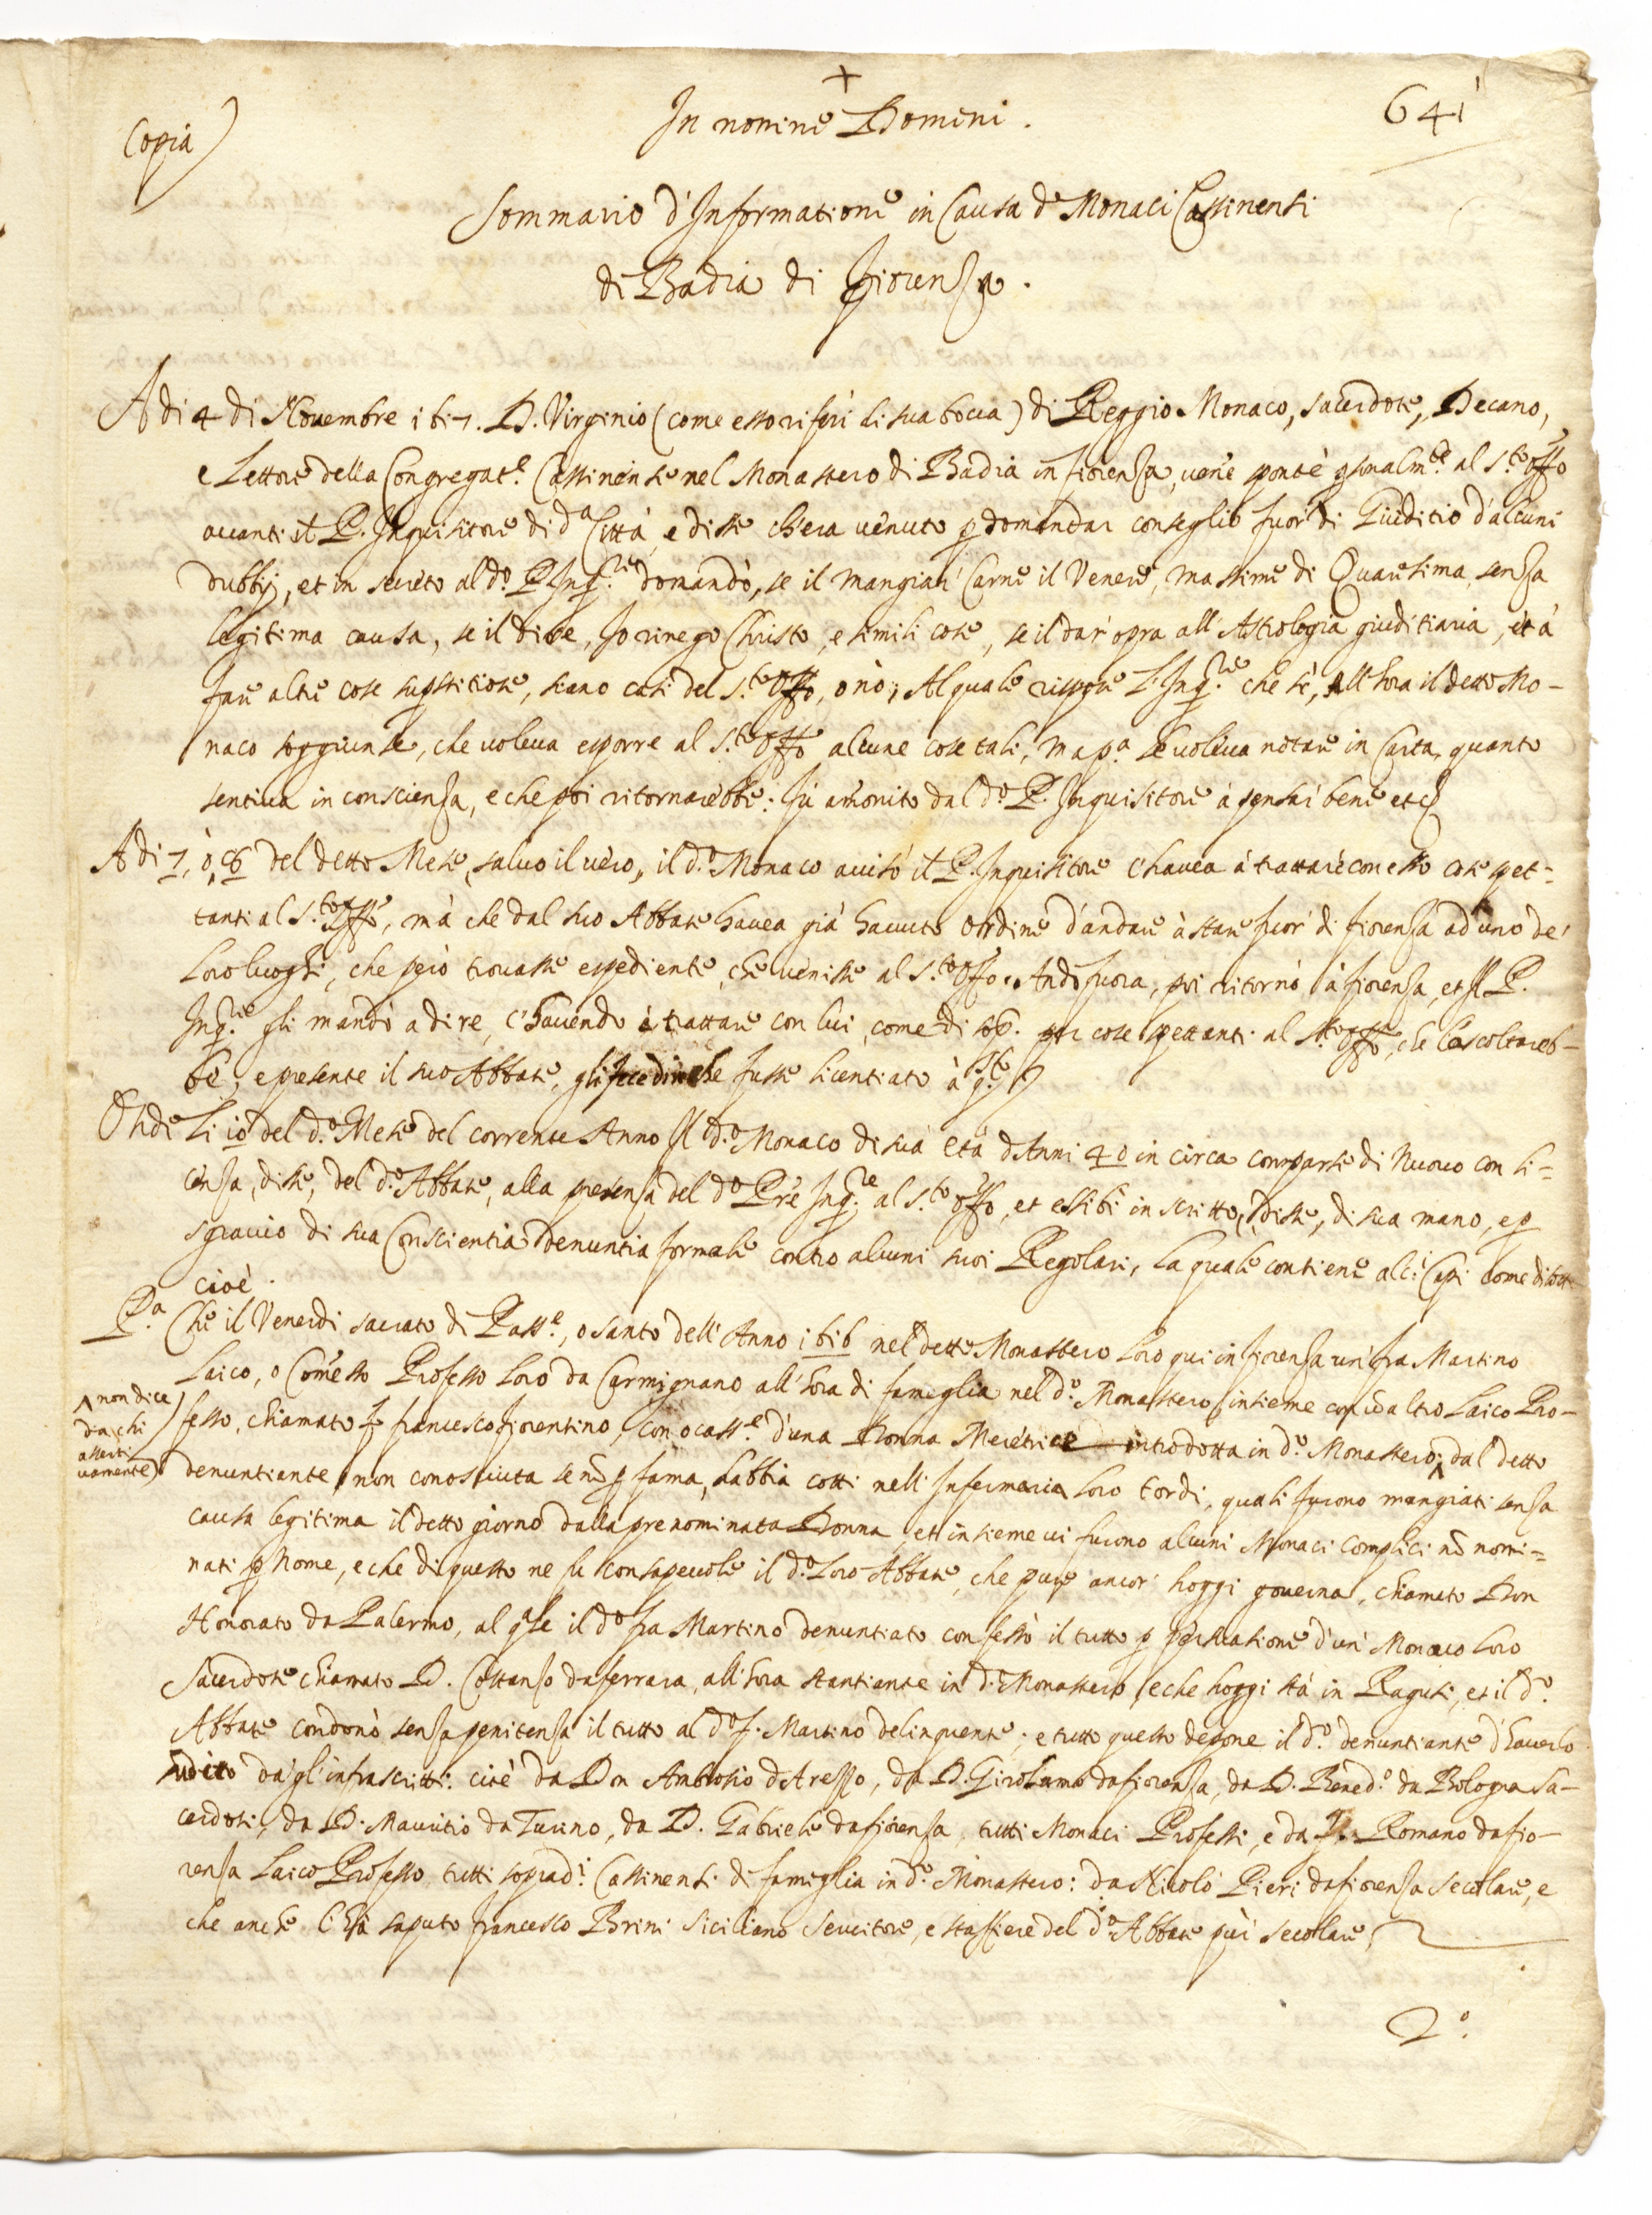 +
In nomine Domini.
641
Copia
Sommario d'Informatione in Causa de Monaci Cassinensi
di Badia di Fiorenza.
A di 4 di Novembre 1617. D. Virginio (come esso riferì di sua bocca) di Reggio Monaco, sacerdote, Decano,
e Lettore della Congregat.e Cassinense nel Monastero di Badia in fiorenza, venne sponte personalm.te al S.to Offo
avanti il P. Inquisitore di d.a Città, e disse ch'era venuto p domandar conseglio fuor di Giuditio d'alcuni
dubbij, et in secreto al d.o P. Inq.re domandò, se il mangiar Carne il Venere, massime di Quaresima, senza
legitima causa, se il dire, Io rinego Christo, e simili cose, se il dar opra all'Astrologia giuditiaria, et à
fare altre cose supstitiose, siano casi del S.to Offo, o nò; Al quale rispose l'Inq.re che sè, All'hora il detto Mo-
naco soggiunse, che voleva esporre al S.to Offo alcune cose tali, ma p.a se voleva notare in Carta, quanto
sentiva in conscienza, e che poi ritornarebbe: fù amonito dal d.o P. Inquisitore à pensar bene etc.
A di 7, ò 8 del detto Mese, salvo il vero, il d.o Monaco avisò il P. Inquisitore c'havea à trattare con esso cose spet-
tanti al S.to Offo, mà che dal suo Abbate havea già havuto ordine d'andare à stare fuor di fiorenza ad uno de'
loro luoghi, che però trovasse espediente, che venisse al S.to Offo. Andò fuora, poi ritornò à fiorenza, et il P.
Inq.re gli mandò a dire, c'havendo à trattare con lui, come di sop. per cose spettanti al S.to Offo, che l'ascoltareb-
be; e presente il suo Abbate, gli fece dire che fusse licentiato à q.to
Onde li 10 del d.o Mese del corrente Anno Il d.o Monaco di sua età d'Anni 40 in circa comparse di Nuovo con li-
cenza, disse, del d.o Abbate, alla presenza del d.o Pre Inq.re al S.to Offo, et essibì in scritto, disse, di sua mano, e p
sgravio di sua Conscientia denuntia formale contro alcuni suoi Regolari, la quale contiene alc.i Capi come di sotto
cioè.
P.a Che il Venerdi sacrato di Pass.e, o santo dell'Anno 1616 nel detto Monastero loro qui in fiorenza un fra Martino
laico, o Comesso Professo loro da Carmignano all'hora di fameglia nel d.o Monastero, insieme con un altro laico Pro-
fesso, chiamato f. francesco fiorentino, con ocass.e d'una Donna Meretrice introdotta in d.o Monastero, ^ dal detto
^ non dice
da chi
asserti
vamente)
denuntiante non conosciuta se nò p fama, habbia cotti nell'Infermaria loro tordi, quali furono mangiati senza
causa legitima il detto giorno dalla prenominata Donna, et insieme vi furono alcuni Monaci Complici nò nomi-
nati p Nome, e che di questo ne fu consapevole il d.o loro Abbate, che pure ancor hoggi governa, chiamato Don
Honorato da Palermo, al qle il d.o fra Martino denuntiato confessò il tutto p persuasione d'un Monaco loro
Sacerdote chiamato D. Costanzo da ferrara, all'hora stantiante in d.o Monastero, e che hoggi stà in Ragusi, et il d.o
Abbate condonò senza penitenza il tutto al d.o f. Martino delinquente; e tutto questo depone il d.o denuntiante d'haverlo
udito da gl'infrascritti: cioè da Don Ambrosio d'Arezzo, da D. Girolamo da fiorenza, da D. Bened.o da Bologna Sa-
cerdoti, da D. Mauritio da Turino, da D. Gabriele da fiorenza, tutti Monaci Professi, e da f. Romano da fio-
renza laico Professo, tutti soprad.i Cassinensi di fameglia in d.o Monastero: da Nicolò Pieri da fiorenza secolare, e
che anche l'hà saputo francesco Brini siciliano servitore, e staffiere del d.o Abbate pur secolare,
2.o